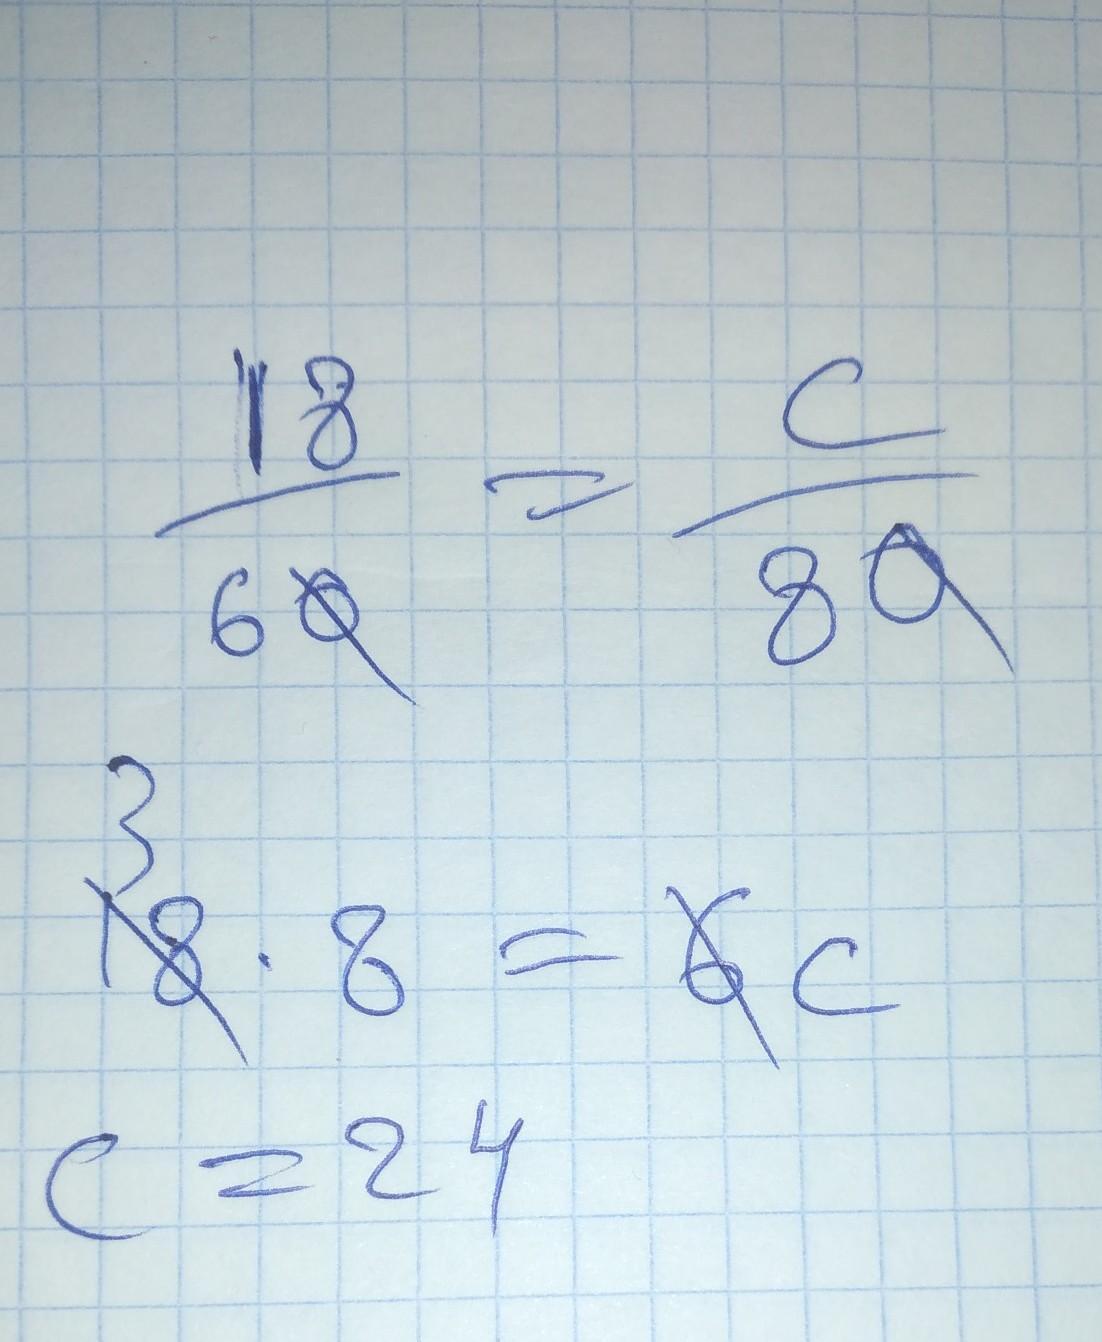 18/60 = c/80
3
18 · 8 = 6c
c = 24